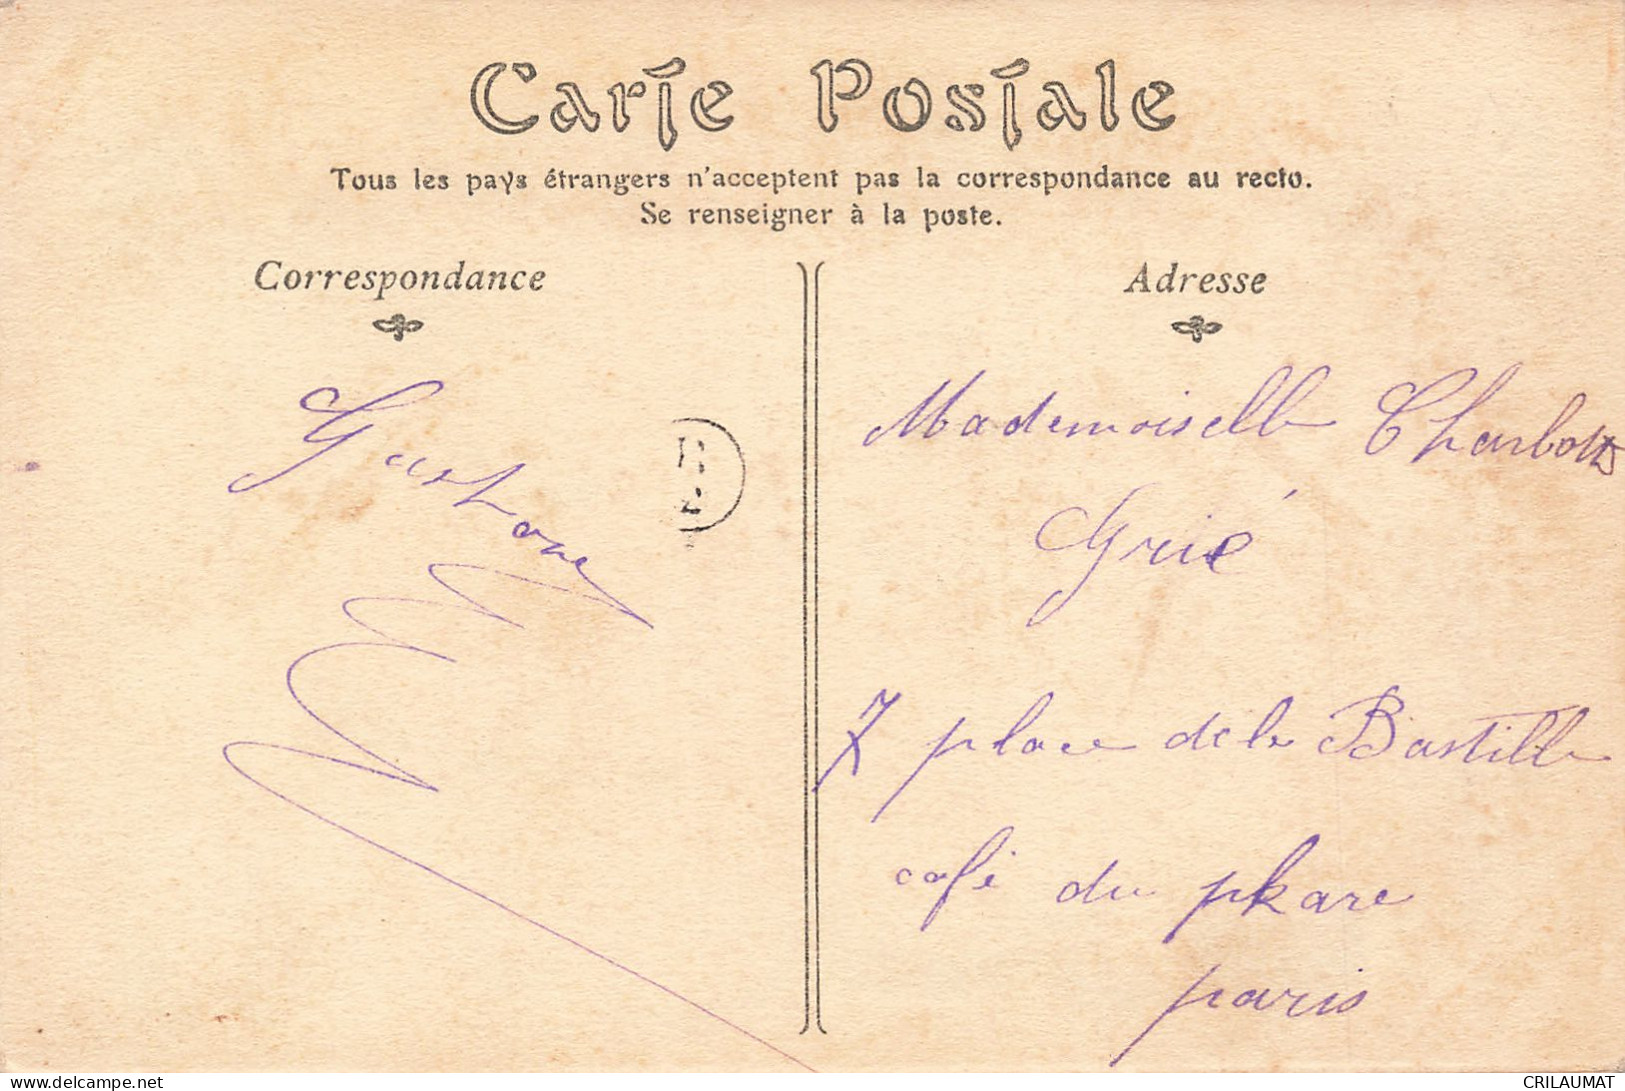 Carte Postale
Tous les pays étrangers n'acceptent pas la correspondance au recto.
Se renseigner à la poste.
Correspondance
Adresse
Gustave
Mademoiselle
Grié
7 place de la Bastille
café du phare
paris
www.delcampe.net
CRILAUMAT